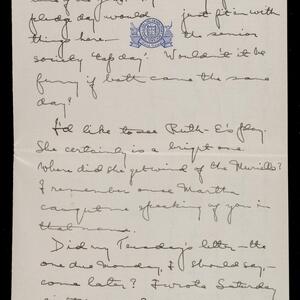 pledge day would just fit in with
things here – the senior
society 'tap day'. Wouldn't it be
funny if both came the same
day?
I'd like to see Ruth-E's play.
She certainly is a bright one
Where did she get wind of the
I remember once Martha
caught me speaking of you in
that name.
Did my Tuesday's letter – the
one due Monday, I should say, –
come later? I wrote Saturday